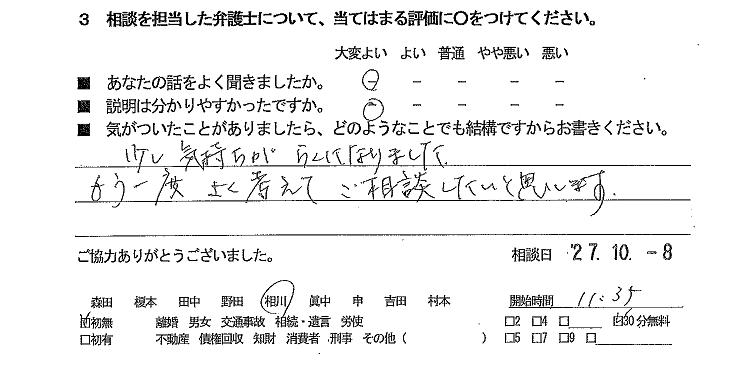 3 相談を担当した弁護士について、当てはまる評価に〇をつけてください。
大変よい よい 普通 やや悪い 悪い
■ あなたの話をよく聞きましたか。 － － － － －
■ 説明は分かりやすかったですか。 － － － － －
■ 気がついたことがありましたら、どのようなことでも結構ですからお書きください。
少し気持ちが らくになりました
もう一度 よく考えて ご相談したいと思います.
ご協力ありがとうございました。 相談日 '27.10.-8
森田 榎本 田中 野田 相川 眞中 申 吉田 村本 開始時間 11:35
☑初無 離婚 男女 交通事故 相続・遺言 労使 □2 □4 □ ☑30分無料
□初有 不動産 債権回収 知財 消費者 刑事 その他( ) □5 □7 □9 □